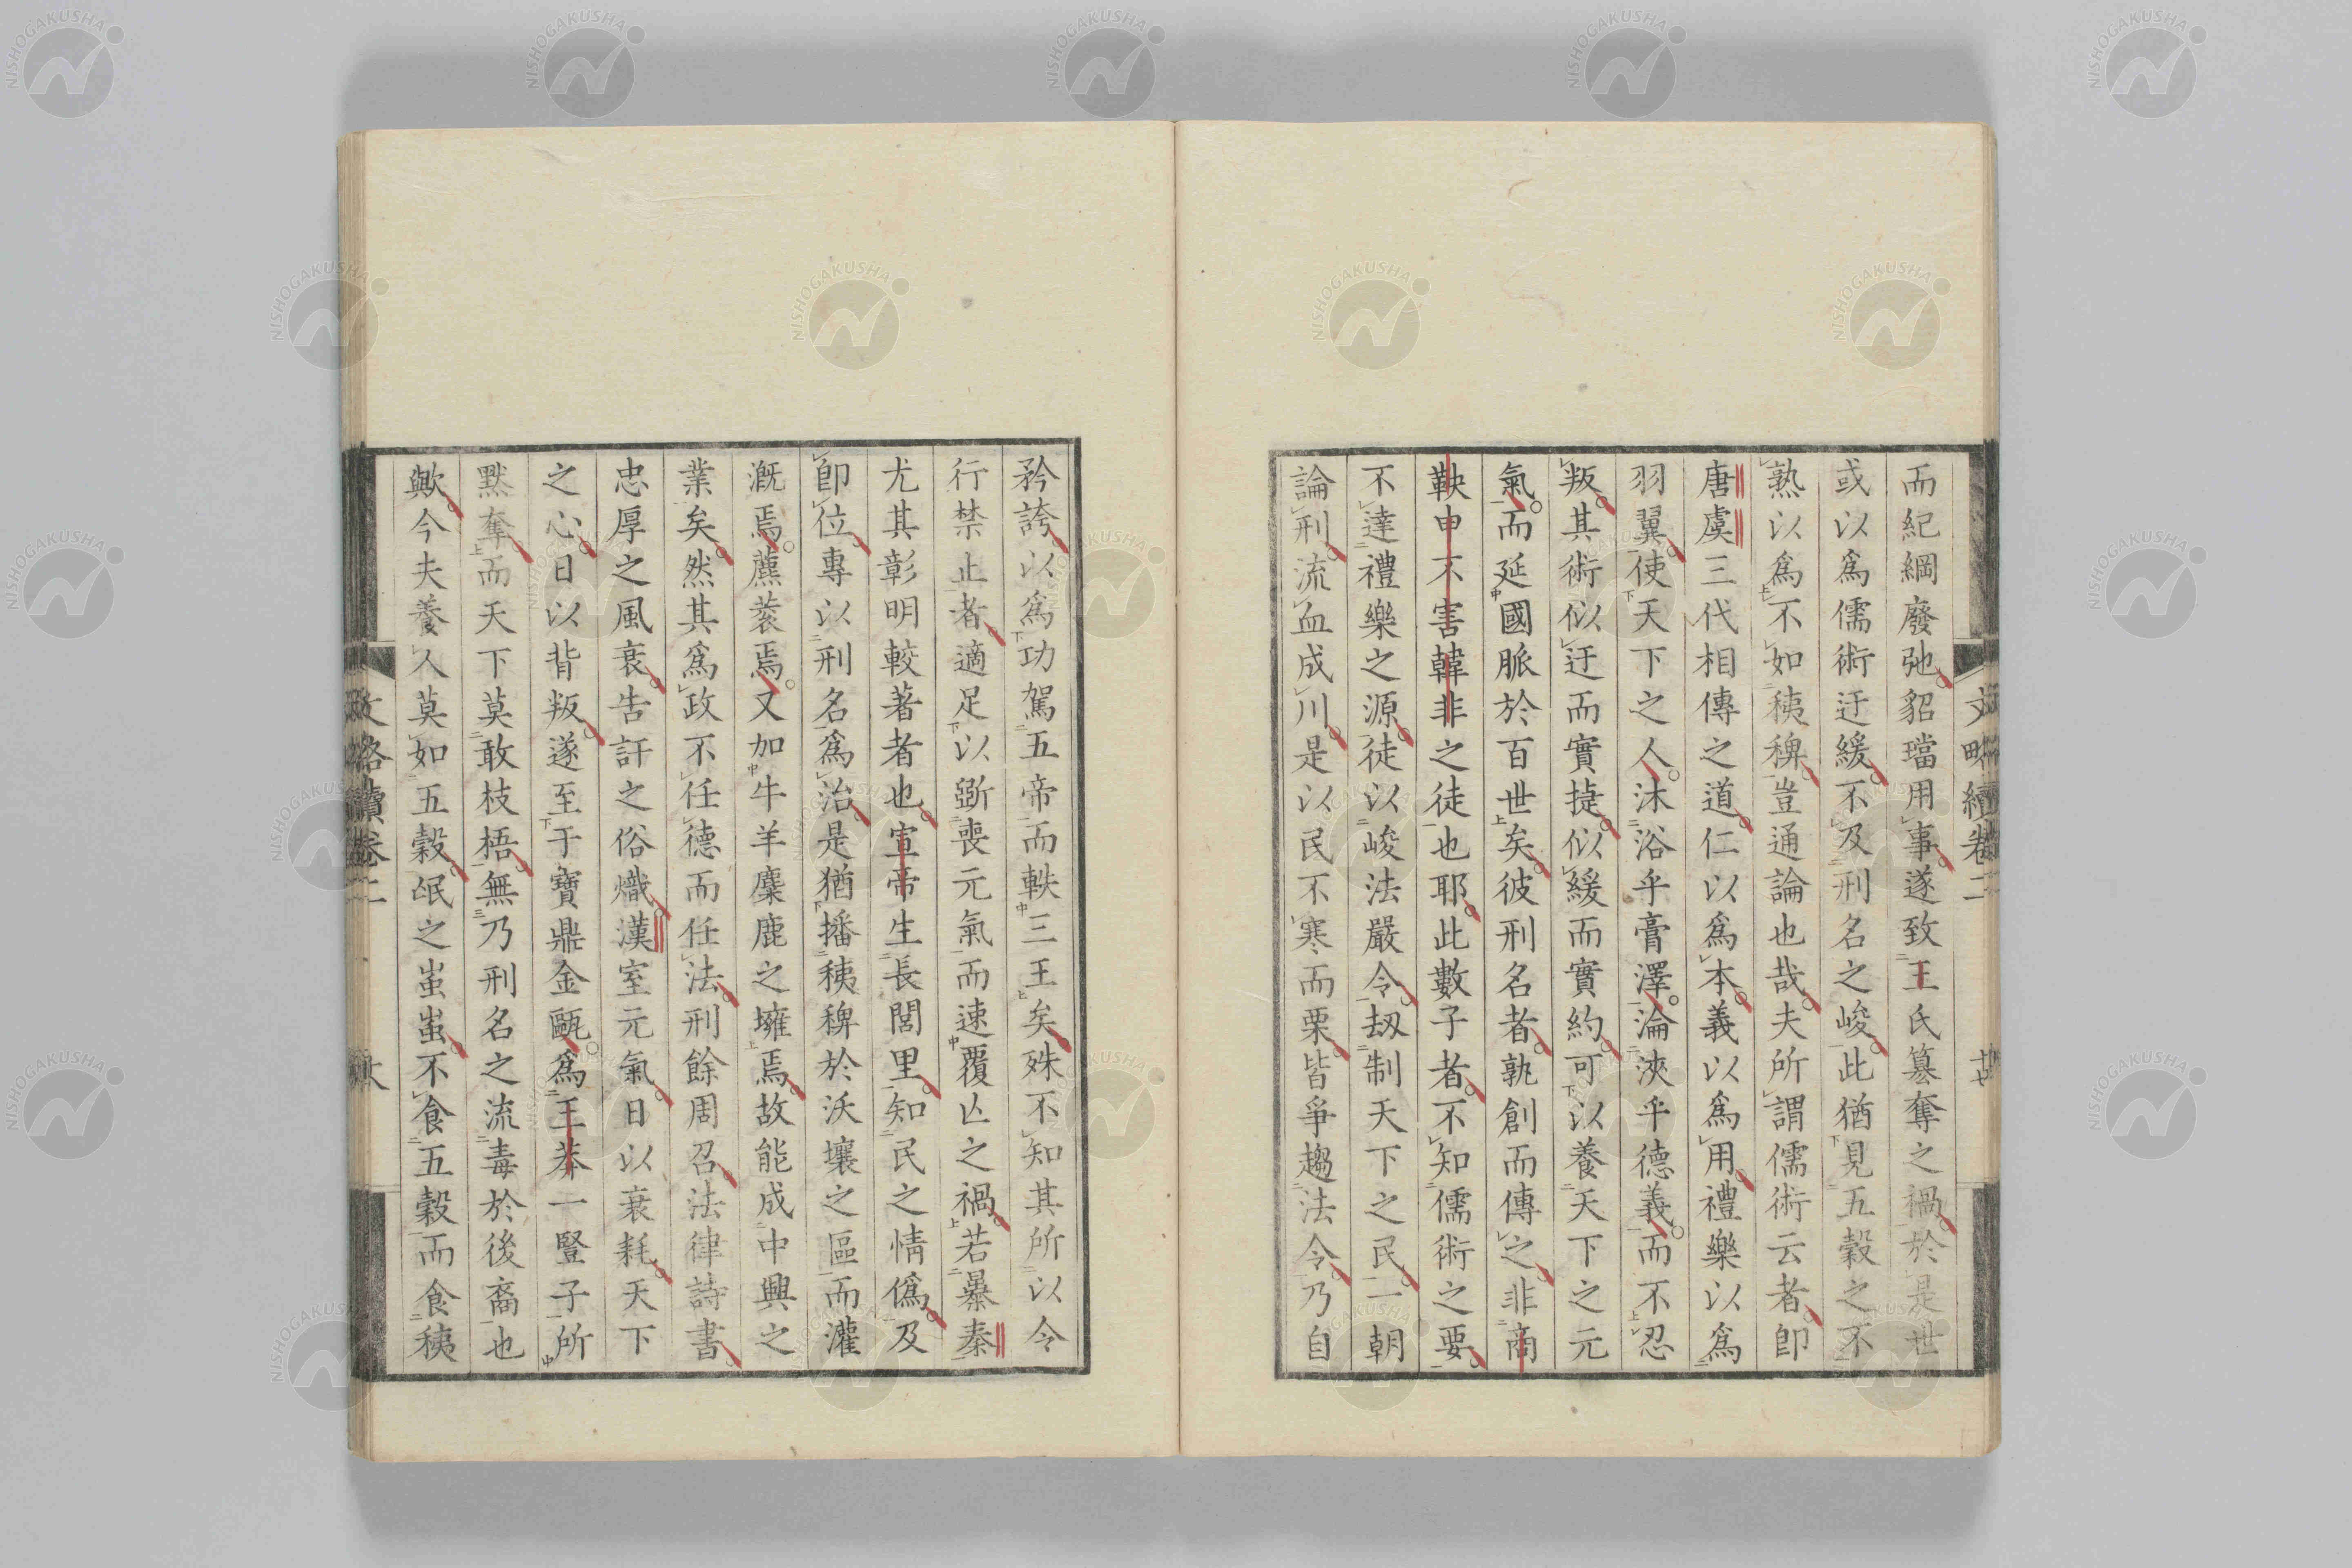 而紀綱廢弛貂璫用事遂致王氏簒奪之禍於是世
或以爲儒術迂緩不及刑名之峻此猶見五穀之不
熟以爲不如稊稗豈通論也哉夫所謂儒術云者卽
唐虞三代相傳之道仁以爲本義以爲用禮樂以爲
羽翼使天下之人沐浴乎膏澤淪浹乎德義而不忍
叛其術似迂而實捷似緩而實約可以養天下之元
氣而延國脈於百世矣彼刑名者孰創而傳之非商
鞅申不害韓非之徒也耶此數子者不知儒術之要
不達禮樂之源徒以峻法嚴令刼制天下之民一朝
論刑流血成川是以民不寒而栗皆爭趨法令乃自
矜誇以爲功駕五帝而軼三王矣殊不知其所以令
行禁止者適足以斲喪元氣而速覆亾之禍若暴秦
尤其彰明較著者也宣帝生長閭里知民之情僞及
卽位專以刑名爲治是猶播稊稗於沃壤之區而灌
漑焉藨蓘焉又加牛羊麋鹿之壅焉故能成中興之
業矣然其爲政不任德而任法刑餘周召法律詩書
忠厚之風衰告訐之俗熾漢室元氣日以衰耗天下
之心日以背叛遂至于寶鼎金甌爲王莽一豎子所
黙奪而天下莫敢枝梧無乃刑名之流毒於後裔也
歟今夫養人莫如五穀氓之蚩蚩不食五穀而食稊
文略續卷二